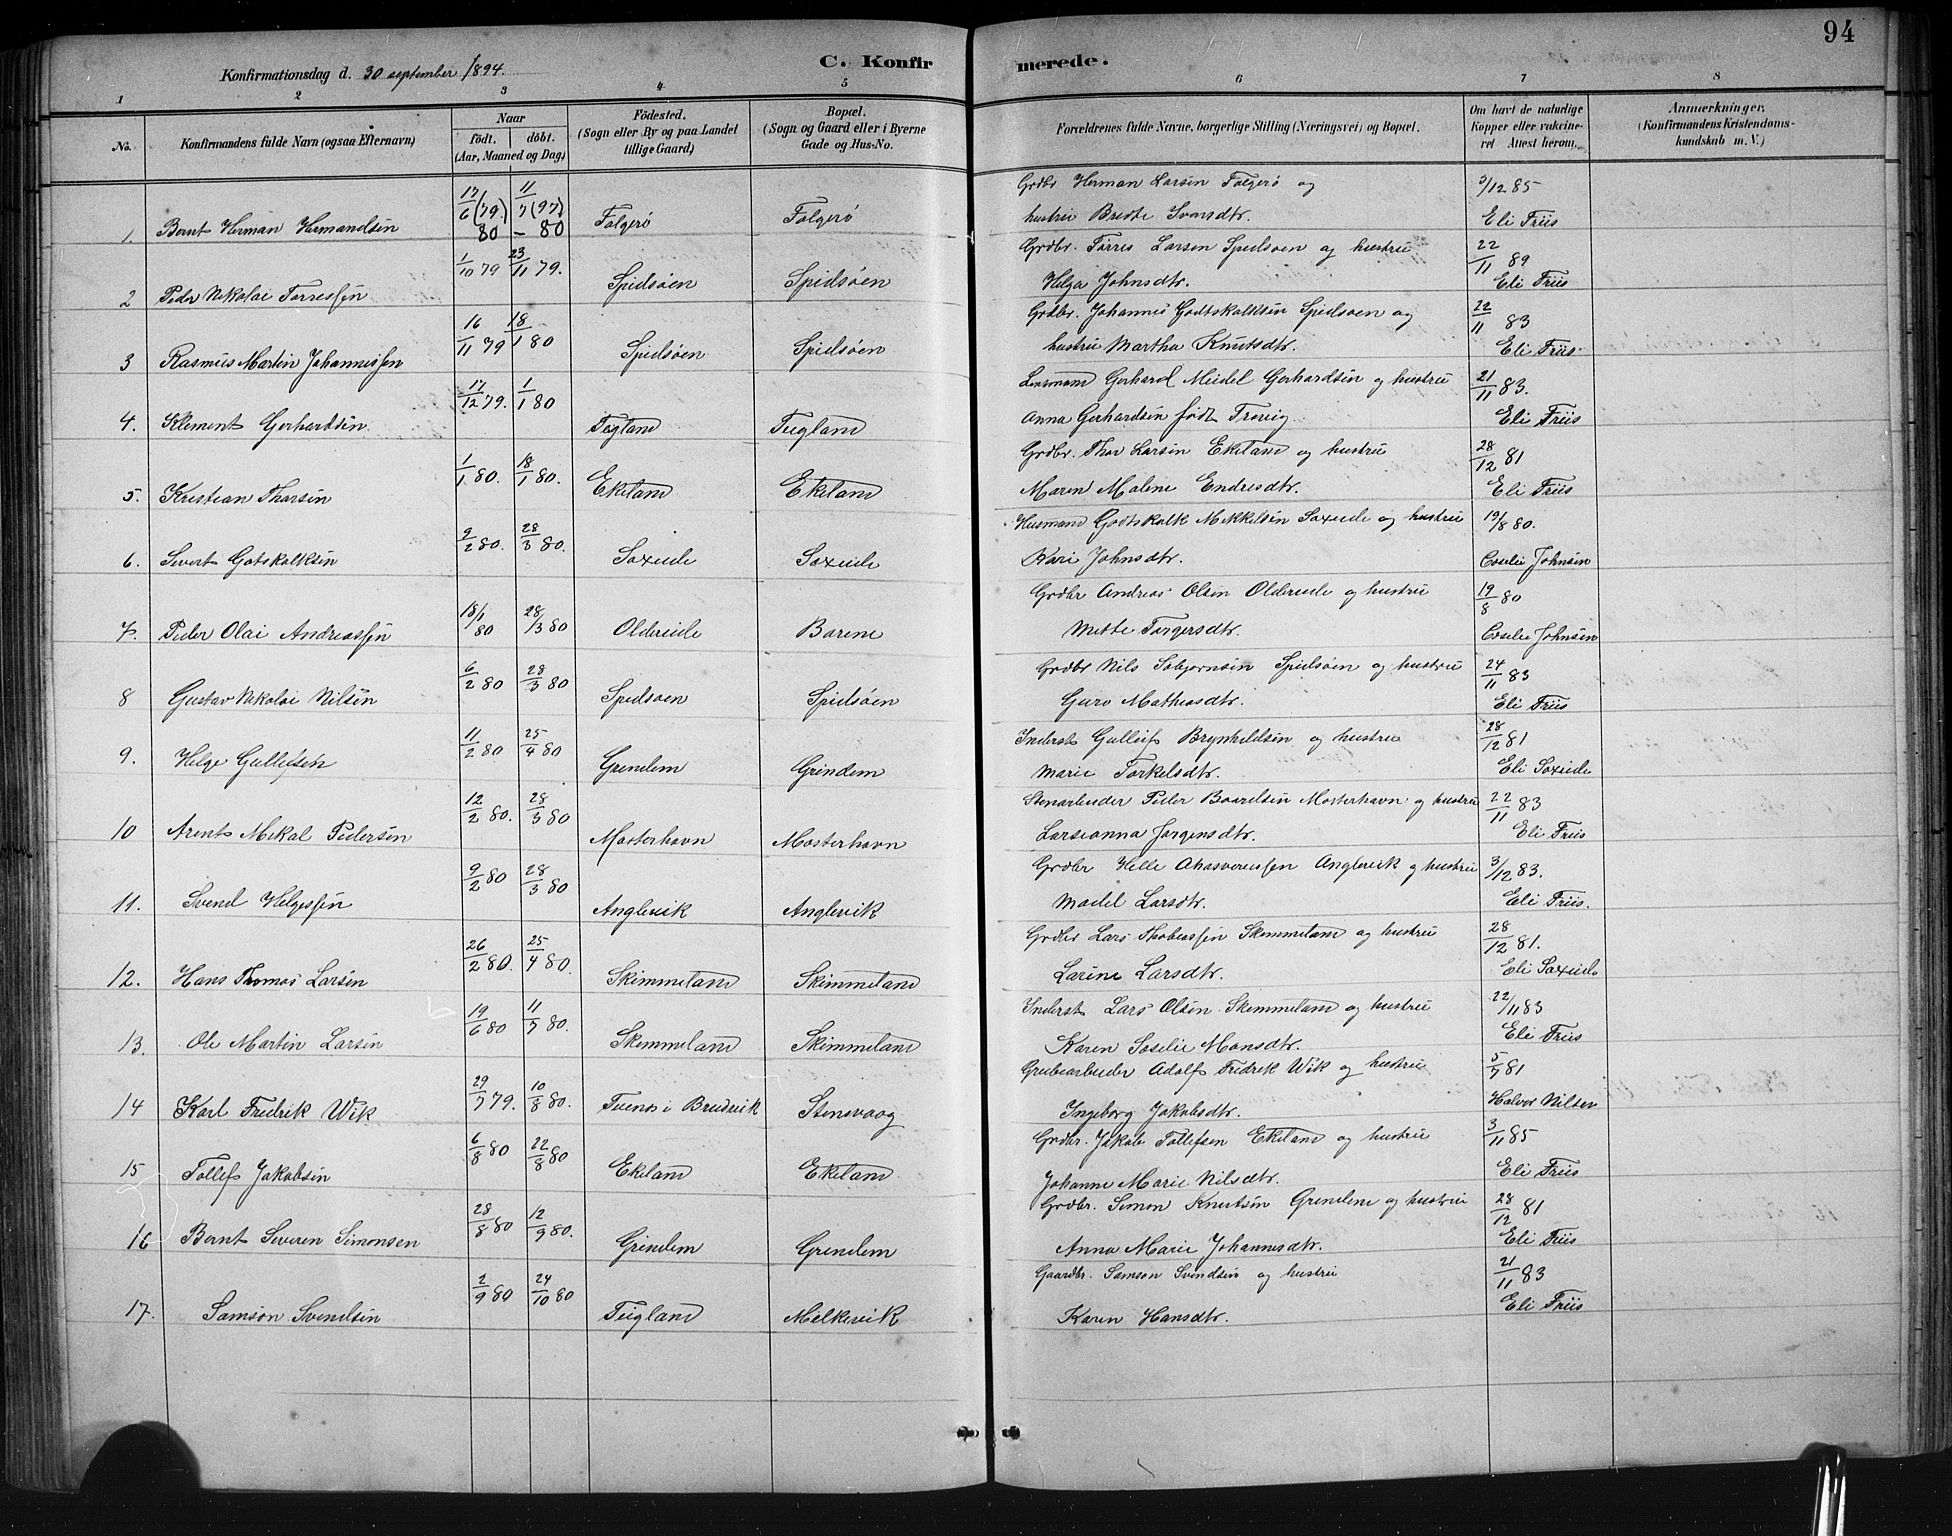 94
Konfirmationsdag d. 30 september 1894.
C. Konfirmerede.
1 2 3 4 5 6 7 8
No.
Konfirmandens fulde Navn (ogsaa Efternavn)
Naar
født. døbt.
(Aar, Maaned og Dag)
Fødested.
(Sogn eller By og paa Landet
tillige Gaard)
Bopæl.
(Sogn og Gaard eller i Byerne
Gade og Hus-No.
Forældrenes fulde Navne, borgerlige Stilling (Næringsvei) og Bopæl.
Om havt de naturlige
Kopper eller vakcine-
ret Attest herom.
Anmærkninger.
(Konfirmandens Kristendoms-
kundskab m. V.)
17/6 (79.) 11/7 (97) Grdbr Herman Larsen Folgerö og 3/12 85
1. Bernt Herman Hermandsen 80 – 80 Folgerö Folgerö hustru Eli Friis
1/10 79 23/11 79. Grdbr. Törres Larsen Spidsöen og hustru 22/11 89
2 Peder Nikolai Torressen Spidsöen Spidsöen Helga Johnsdtr. Eli Friis
16/11 79 18/1 80 Grdbr. Johannes Godtskolksen Spidsoen og 22/11 83
3 Rasmus Martin Johannessen Spidsöen Spidsöen hustru Martha Knutsdtr. Eli Friis
17/12 79. 1/1 80 Lensmand Gerhard Meidel Gerhardsen og hustru 21/11 83.
4. Klement Gerhardsen Tegland Teigland Anna Gerhardsen født Eli Friis
1/1 80. 18/1 80. Grdbr. Thor Larsen Ekeland og hustru 28/12 81
5. Kristian Thorsen Ekeland Ekeland Maren Malene Endresdtr. Eli Friis
9/2 80. 28/3 80. Husmand Godtskalk Mikkelsen Saxeide og hustru 19/8 80.
6. Sivert Gotskalksen Saxeide Saxeide Kari Johnsdtr. Johnsen
18/1 80 28/3 80 Grdbr Andreas Olsen Oldereide og hustru 19/8 80
7. Peder Olai Andreassen Oldereide Borene Mette Torgersdtr. Johnsen
6/2 80 28/3 80 Grdbr Nils Sobjornsen Spidsöen og hustru 24/11 83
8 Gustav Nikolai Nilsen Spidsoen Spidsöen Guro Mathiasdtr. Eli Friis
11/2 80 25/4 80 Inderst Gulleif Brynhildsen og hustru 28/12 81
9. Helge Gulleifsen Grindem Grindem Marie Torkelsdtr. Eli Saxeide
12/2 80. 28/3 80 Stenarbeider Peder Baardsen Mosterhavn og hustru 22/11 83
10 Arent Mikal Pedersen Mosterhavn Mosterhavn Larseanna Jorgensdtr. Eli Friis
9/2 80 28/3 80 Grdbr Helle Ahasverussen Anglevik og hustru 3/12 83.
11. Svend Helgessen Anglevik Anglevik Madel Larsdtr. Eli Friis.
26/2 80. 25/4 80. Grdbr Lars Thobiassen Skimmeland og hustru 28/12 81.
12. Hans Thomas Larsen Skimmeland Skimmeland Larine Larsdtr. Eli Saxeide
19/6 80 11/7 80. Inderst Lars Olsen Skimmeland og hustru 22/11 83
13. Ole Martin Larsen Skimmeland Skimmeland Karen Soselie Monsdtr. Eli Friis
29/7 79. 10/8 80. Grubearbeider Adolf Fredrik Wik og hustru 5/7 81
14 Karl Fredrik Wik i Brudvik Stensvaag Ingeborg Jakobsdtr. Halvor Nilsen
6/8 80 22/8 80 Grdbr. Jakob Tollefsen Ekeland og hustru 3/11 85
15 Tollef Jakobsen Ekeland Ekeland Johanne Marie Nilsdtr. Eli Friis
28/8 80 12/9 80. Grdbr. Simon Knutsen Grindene og hustru 28/12 81
16 Bernt Severen Simonsen Grindem Grindem Anna Marie Johannesdtr. Eli Friis
2/9 80 24/10 80 Gaardbr. Samson Svendsen og hustru 21/11 83
17. Samson Svendsen Teigland Melkevik Karen Hansdtr. Eli Friis